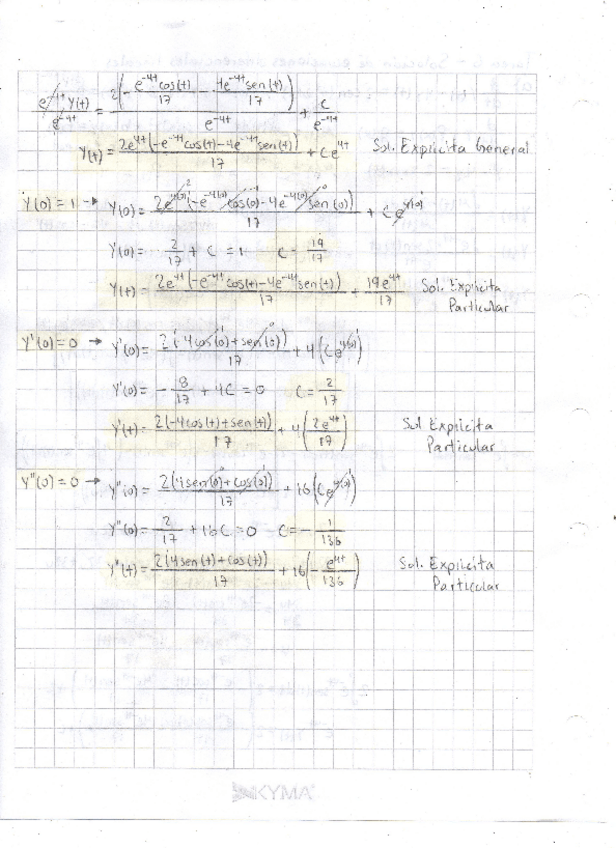 e^-4t/e^-4t Y(t) = 2(-e^-4t cos(t)/17 - 4e^-4t sen(t)/17)/e^-4t + c/e^-4t
Y(t) = 2e^4t(-e^-4t cos(t)-4e^-4t sen(t))/17 + Ce^4t Sol. Explicita General
Y(0)=1 → Y(0)= 2e^4(0)(-e^-4(0) cos(0)-4e^-4(0) sen(0))/17 + Ce^4(0)
Y(0)= -2/17 + C = 1 C= 19/17
Y(t)= 2e^4t(-e^-4t cos(t)-4e^-4t sen(t))/17 + 19e^4t/17 Sol. Explicita
Particular
Y'(0)=0 → Y'(0)= 2(-4cos(0)+sen(0))/17 + 4(Ce^4(0))
Y'(0)= -8/17 + 4C = 0 C= 2/17
Y'(t)= 2(-4cos(t)+sen(t))/17 + 4(2e^4t/17) Sol Explicita
Particular
Y''(0)=0 → Y''(0)= 2(4sen(0)+cos(0))/17 + 16(Ce^4(0))
Y''(0)= 2/17 + 16C=0 C=-1/136
Y''(t)= 2(4sen(t)+cos(t))/17 + 16(-e^4t/136) Sol. Explicita
Particular
KYMA